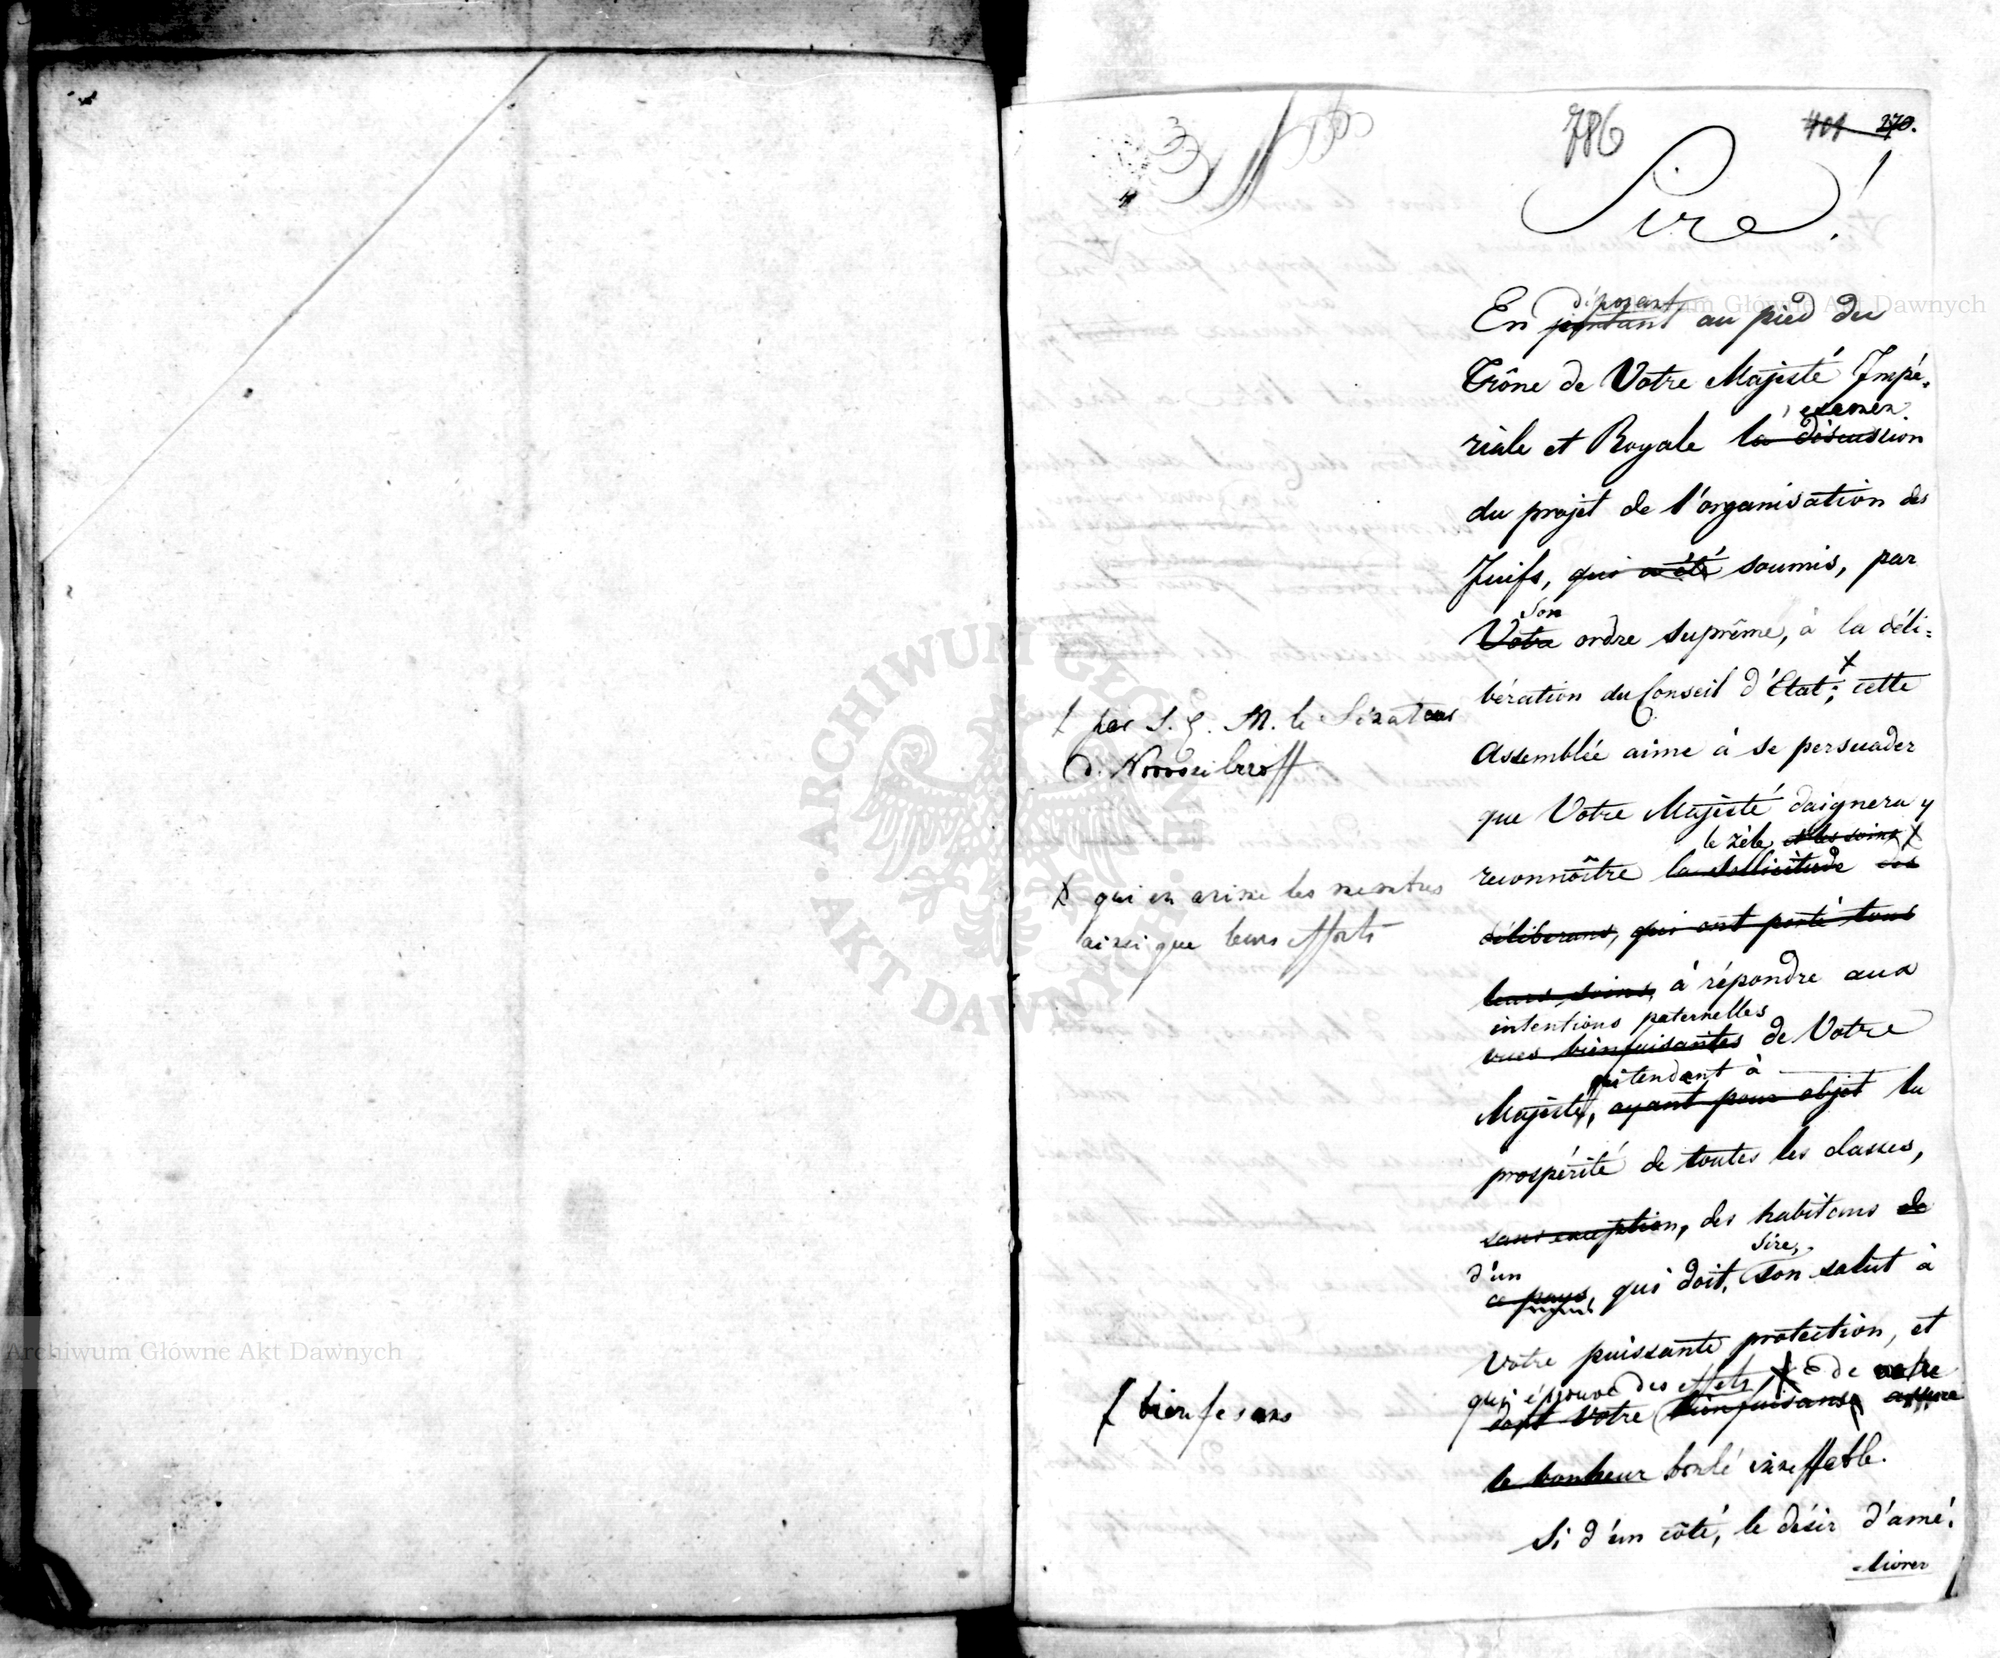 786
401 270.
Sire!
déposant
En portant au pied du
Trône de Votre Majesté Impé-
examen
riale et Royale la discussion
du projet de l'organisation des
Juifs, qui a été soumis, par
Son
Votre ordre suprême, à la déli=
bération du Conseil d'Etat; cette
ł par S. E. M. le Sénateur
d. Nowosilzoff
Assemblée aime à se persuader
que Votre Majesté daignera y
le zèle et les soins
reconnoître la sollicitude des
X qui en anime les membres
ainsi que leurs efforts
délibérans, qui ont porté tous
leurs soins, à répondre aux
intentions paternelles
vues bienfaisantes de Votre
qui tendent à
Majesté, ayant pour objet la
prospérité de toutes les classes,
sans exception, des habitans de
Sire,
d'un
ce pays, qui doit, son salut à
Votre puissante protection, et
qui éprouve des effets de votre
dont Votre bienfaisance assure
ł bienfesans
le bonheur bonté ineffable.
Si d'un côté, le désir d'amé-
-liorer
ARCHIWUM GŁÓWNE AKT DAWNYCH
Archiwum Główne Akt Dawnych
Archiwum Główne Akt Dawnych